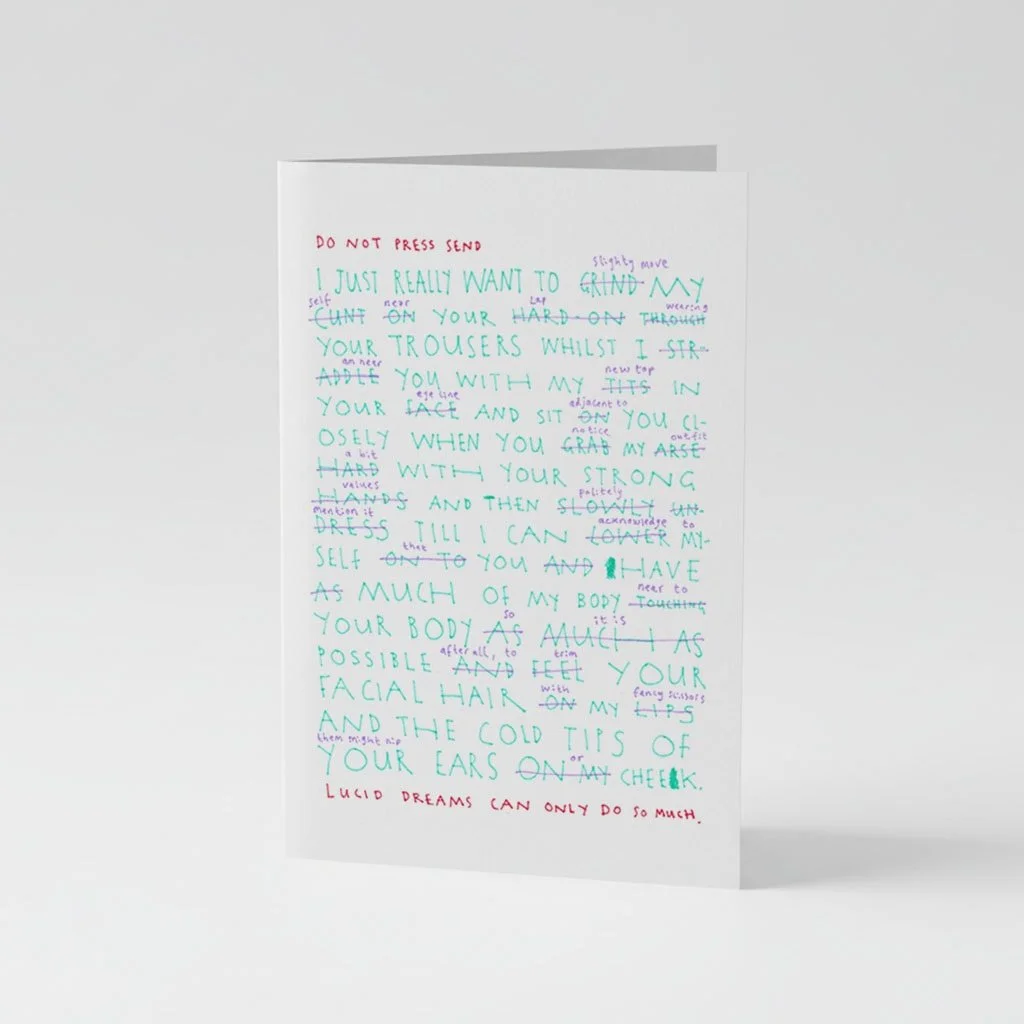 DO NOT PRESS SEND
slighty move
I JUST REALLY WANT TO GRIND MY
self near Lap wearing
CUNT ON YOUR HARD-ON THROUGH
YOUR TROUSERS WHILST I STR-
am near new top
ADDLE YOU WITH MY TITS IN
eye line adjacent to
YOUR FACE AND SIT ON YOU CL-
notice outfit
OSELY WHEN YOU GRAB MY ARSE
a bit
HARD WITH YOUR STRONG
values politely
HANDS AND THEN SLOWLY UN-
mention it acknowledge to
DRESS TILL I CAN LOWER MY-
that
SELF ON TO YOU AND I HAVE
near to
AS MUCH OF MY BODY TOUCHING
so it is
YOUR BODY AS MUCH I AS
after all, to trim
POSSIBLE AND FEEL YOUR
with fancy scissors
FACIAL HAIR ON MY LIPS
AND THE COLD TIPS OF
them might nip or
YOUR EARS ON MY CHEEK.
LUCID DREAMS CAN ONLY DO SO MUCH.